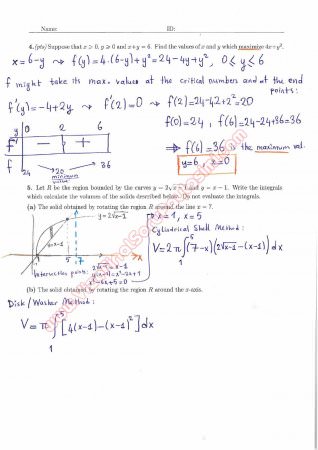 Name: ID:
4. (pts) Suppose that x ≥ 0, y ≥ 0 and x+y = 6. Find the values of x and y which maximize 4x+y².
x = 6-y → f(y) = 4·(6-y)+y² = 24-4y+y², 0 ≤ y ≤ 6
f might take its max. values at the critical numbers and at the end points:
f'(y) = -4+2y → f'(2)=0 → f(2) = 24-4·2+2² = 20
f(0) = 24, f(6) = 24-24+36 = 36
y 0 2 6
f' - +
f 24 20 36
minimum value
⇒ f(6) = 36 is the maximum val.
y=6, x=0
5. Let R be the region bounded by the curves y = 2√x-1 and y = x-1. Write the integrals
which calculate the volumes of the solids described below. Do not evaluate the integrals.
(a) The solid obtained by rotating the region R around the line x = 7.
y=2√x-1
→ x=1, x=5
Cylindrical Shell Method:
y=x-1
V = 2π ∫ (7-x)(2√x-1 - (x-1)) dx
1 5 7 x
Intersection points:
2√x-1 = x-1
4(x-1) = x²-2x+1
x²-6x+5=0
(b) The solid obtained by rotating the region R around the x-axis.
Disk / Washer Method:
V = π ∫ [4(x-1) - (x-1)²] dx
5
1